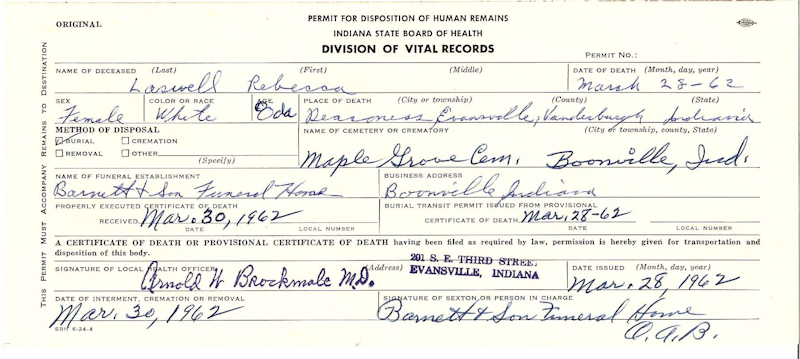 ORIGINAL
PERMIT FOR DISPOSITION OF HUMAN REMAINS
INDIANA STATE BOARD OF HEALTH
DIVISION OF VITAL RECORDS
PERMIT NO.:
THIS PERMIT MUST ACCOMPANY REMAINS TO DESTINATION
NAME OF DECEASED (Last) (First) (Middle) DATE OF DEATH (Month, day, year)
Laswell Rebecca March 28-62
SEX COLOR OR RACE AGE PLACE OF DEATH (City or township) (County) (State)
Female White 8da Deaconess, Evansville, Vanderburgh Indiana
METHOD OF DISPOSAL NAME OF CEMETERY OR CREMATORY (City or township, county, State)
BURIAL CREMATION
REMOVAL OTHER
(Specify)
Maple Grove Cem. Boonville, Ind.
NAME OF FUNERAL ESTABLISHMENT BUSINESS ADDRESS
Barnett & Son Funeral Home Boonville, Indiana
PROPERLY EXECUTED CERTIFICATE OF DEATH BURIAL TRANSIT PERMIT ISSUED FROM PROVISIONAL
RECEIVED Mar. 30, 1962 CERTIFICATE OF DEATH Mar. 28-62
DATE LOCAL NUMBER DATE LOCAL NUMBER
A CERTIFICATE OF DEATH OR PROVISIONAL CERTIFICATE OF DEATH having been filed as required by law, permission is hereby given for transportation and
disposition of this body.
SIGNATURE OF LOCAL HEALTH OFFICER (Address) DATE ISSUED (Month, day, year)
Arnold W Brockmole M.D. 201 S. E. THIRD STREET, Mar. 28, 1962
EVANSVILLE, INDIANA
DATE OF INTERMENT, CREMATION OR REMOVAL SIGNATURE OF SEXTON OR PERSON IN CHARGE
Mar. 30, 1962 Barnett & Son Funeral Home
O.A.B.
SBH 6-24-4